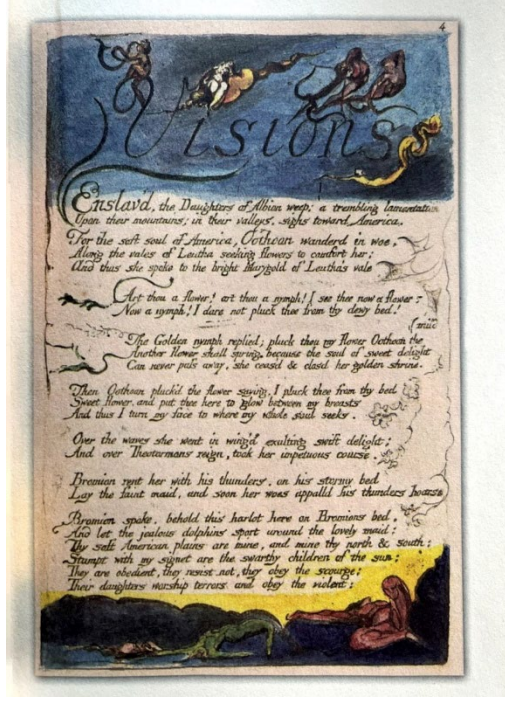 4
Visions
Enslav'd, the Daughters of Albion weep; a trembling lamentation
Upon their mountains; in their valleys, sighs toward America.
For the soft soul of America, Oothoon wanderd in woe,
Along the vales of Leutha seeking flowers to comfort her;
And thus she spoke to the bright Marygold of Leutha's vale
Art thou a flower! art thou a nymph! I see thee now a flower;
Now a nymph! I dare not pluck thee from thy dewy bed!
The Golden nymph replied; pluck thou my flower Oothoon the mild
Another flower shall spring, because the soul of sweet delight
Can never pass away, she ceas'd & closd her golden shrine.
Then Oothoon pluck'd the flower saying, I pluck thee from thy bed
Sweet flower, and put thee here to glow between my breasts
And thus I turn my face to where my whole soul seeks.
Over the waves she went in wing'd exulting swift delight;
And over Theotormons reign, took her impetuous course.
Bromion rent her with his thunders, on his stormy bed
Lay the faint maid, and soon her woes appalld his thunders hoarse
Bromion spoke, behold this harlot here on Bromions bed,
And let the jealous dolphins sport around the lovely maid;
Thy soft American plains are mine, and mine thy north & south:
Stampt with my signet are the swarthy children of the sun:
They are obedient, they resist not, they obey the scourge:
Their daughters worship terrors and obey the violent: